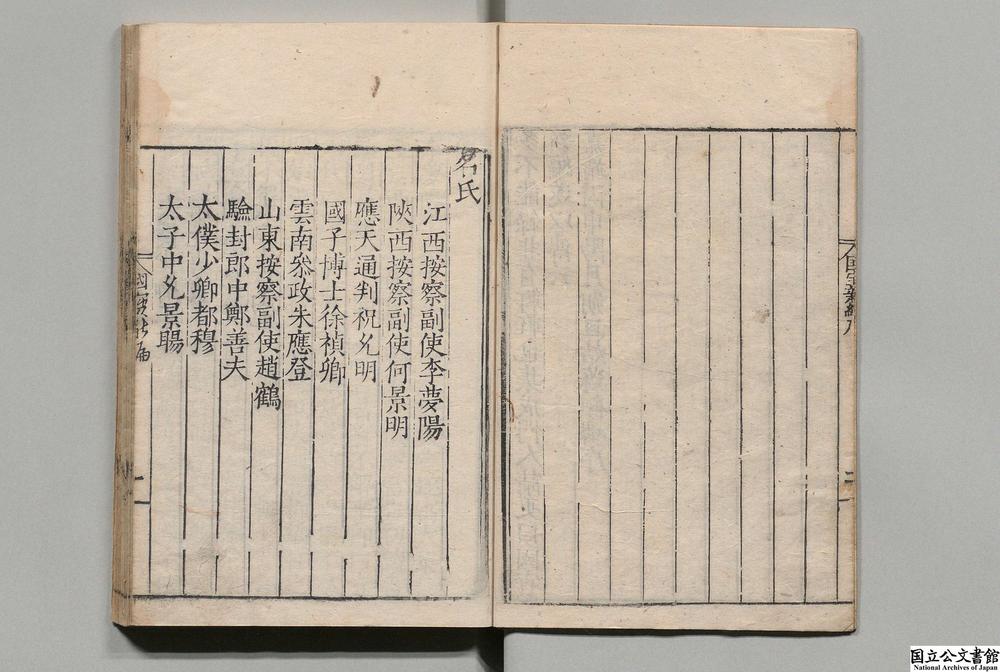 名氏
江西按察副使李夢陽
陝西按察副使何景明
應天通判祝允明
國子博士徐禎卿
雲南叅政朱應登
山東按察副使趙鶴
驗封郎中鄭善夫
太僕少卿都穆
太子中允景暘
國寶新編
一
二
国立公文書館
National Archives of Japan